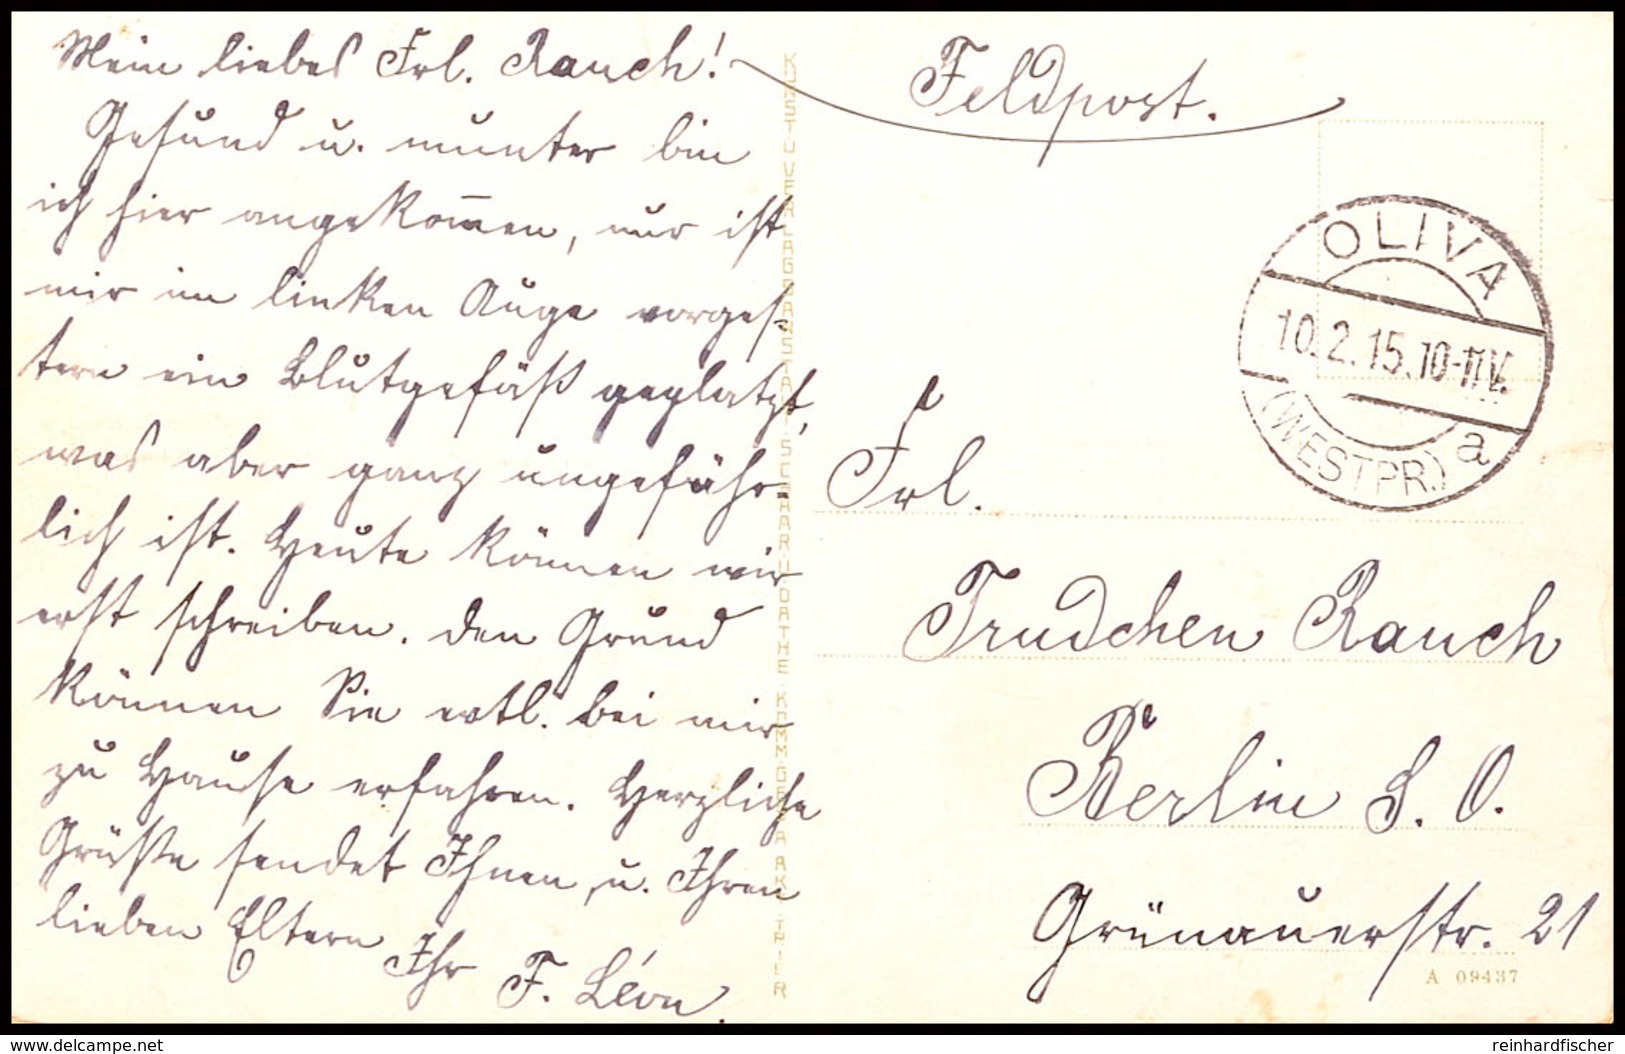 Mein liebes Frl. Rauch!
Gesund u. munter bin
ich hier angekom̅en, nur ist
mir im linken Auge vorges-
tern ein Blutgefäß geplatzt,
was aber ganz ungefähr-
lich ist. Heute können wir
erst schreiben. Den Grund
können Sie evtl. bei mir
zu Hause erfahren. Herzliche
Grüße sendet Ihnen, u. Ihren
lieben Eltern Ihr F. Léon.
KUNST U. VERLAGSANSTALT SCHAAR U. DATHE KOMM. GES. A. AKT. TRIER
Feldpost.
OLIVA
10.2.15.10-11V.
(WESTPR.) a
Frl.
Trudchen Rauch
Berlin S. O.
Grünauerstr. 21
A 09437
delcampe.net
reinhardfischer